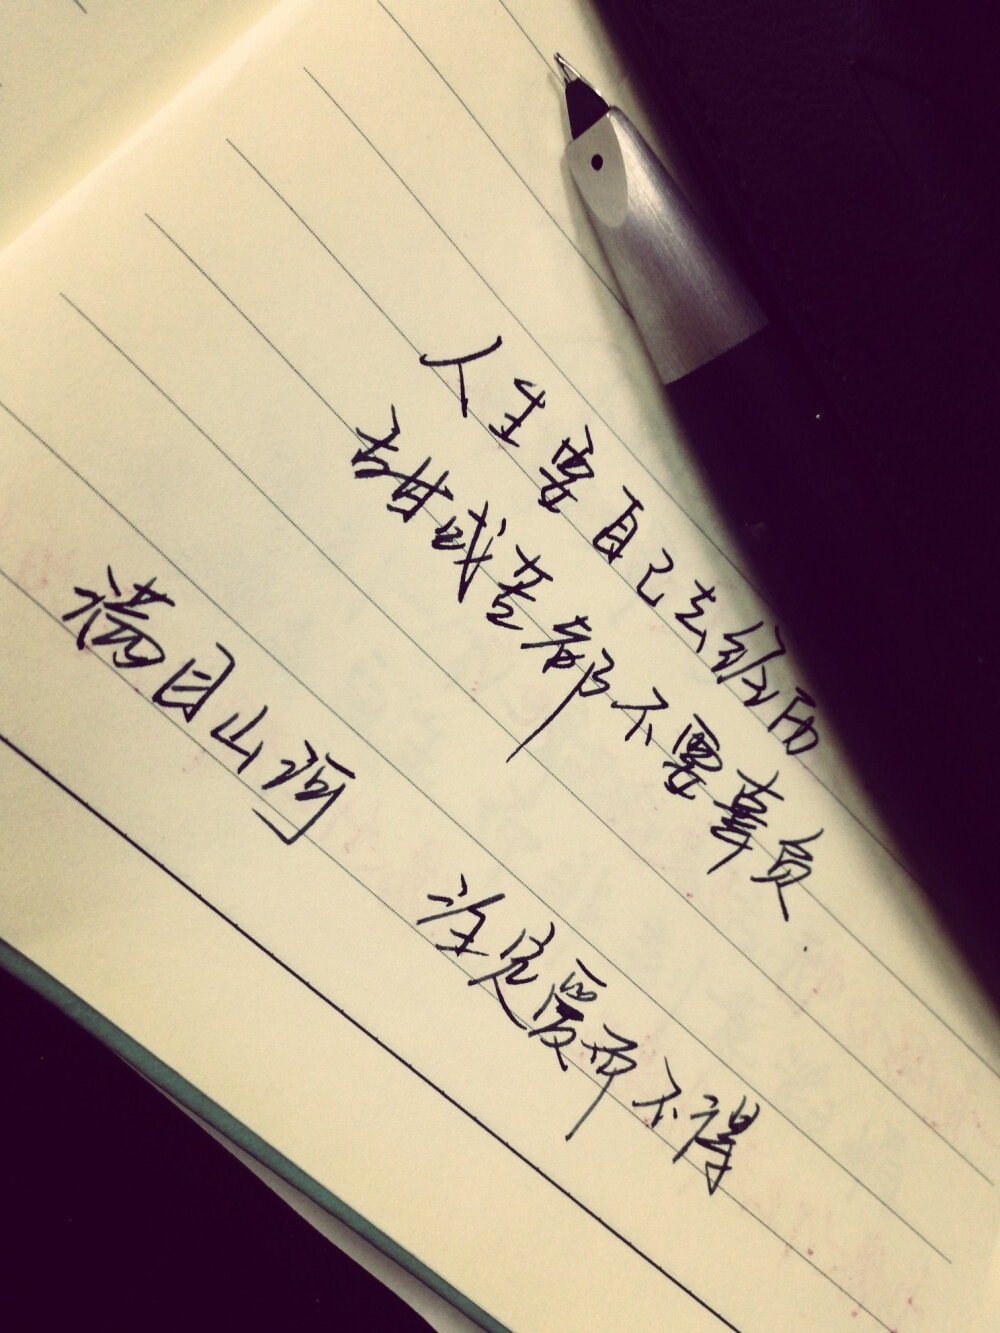 人生要自己去经历
甜或苦都不要辜负.
满目山河
注定爱而不得